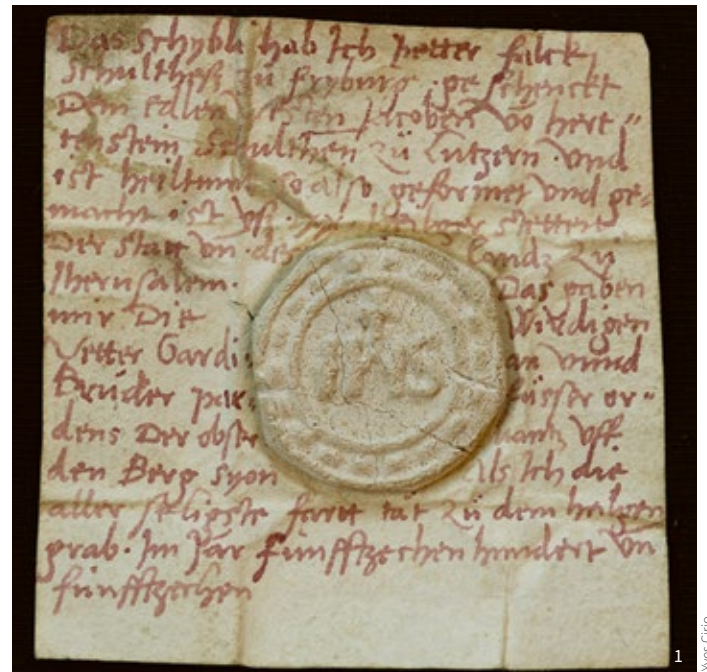 Das schybli hab Ich petter falck
Schultheß zu fryburg geschenckt
Dem edlen vesten Jacoben vo hert"
tenstein Schulthen zů Lutzern vnd
ist heiltum so also geformet vnd ge=
macht ist vß heilger stetten
Der statt vn des Lands zů
Jherusalem. Das gaben
mir Die Wirdigen
Vetter Gardi an vnnd
Brůder par füsser or"
dens Der obser vantz vff
den Berg syon als Ich die
aller seligste fartt tät zů dem heilgen
grab. Im Jar fünfftzechen hundert vn
fünfftzechen
IHS
1
Yves Cirio